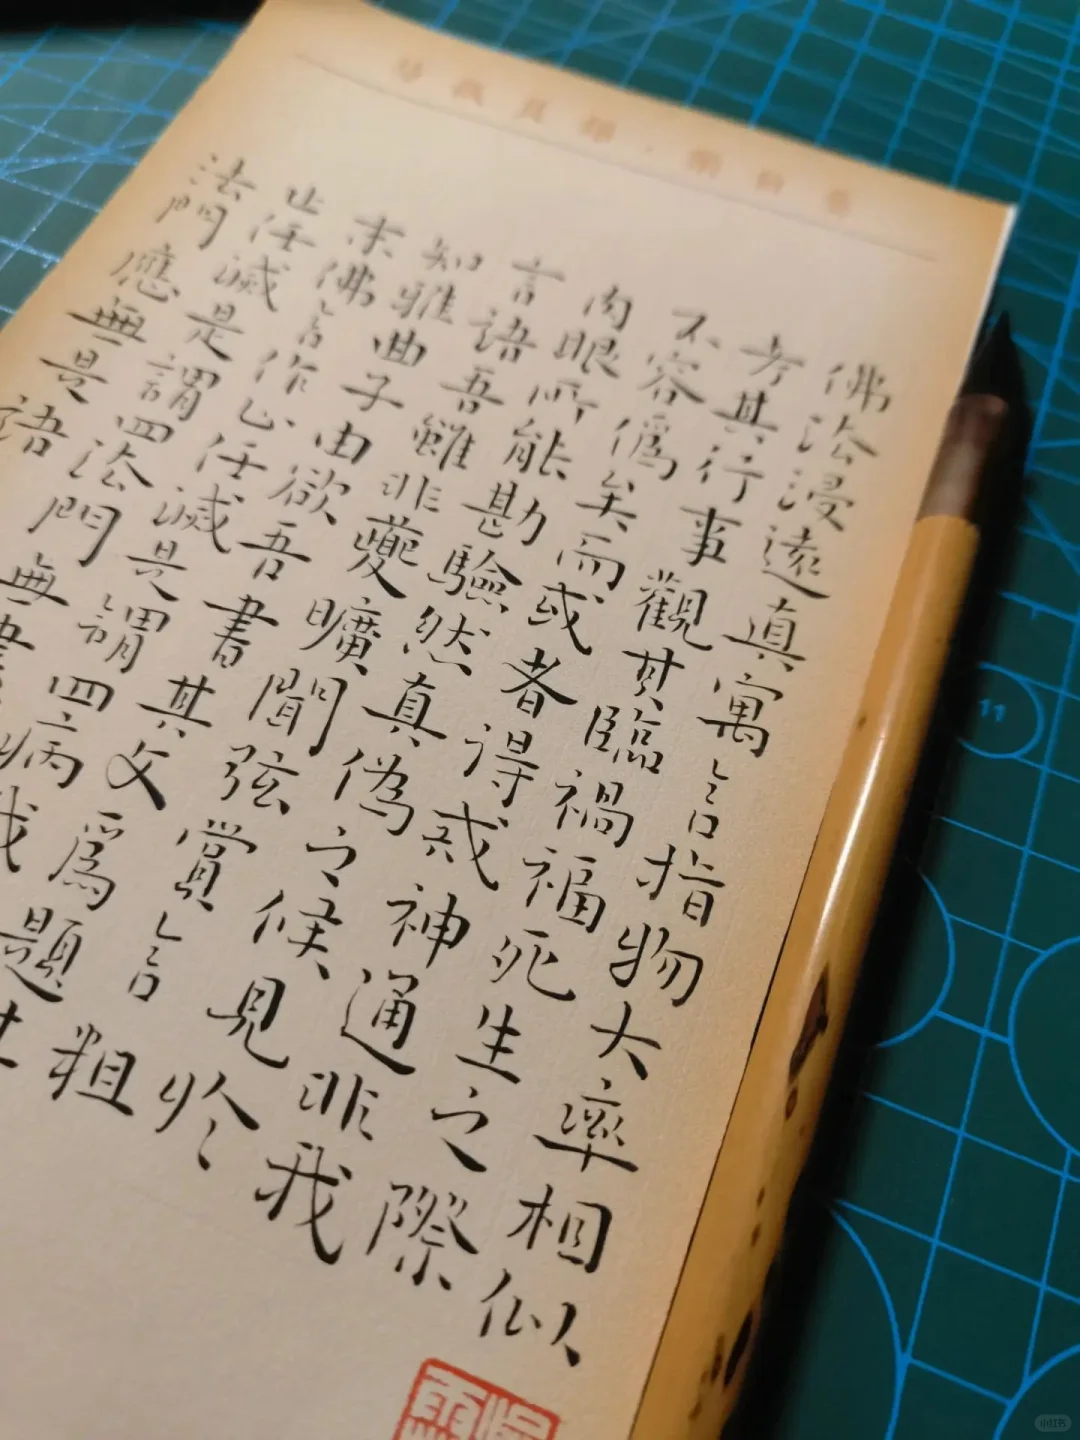 佛法浸遠真寓言指物大率相似
考其行事觀其臨禍福死生之際
不容僞矣而或者得戒神通非我
肉眼所能勘驗然真偽之候見於
言語吾雖非夔曠聞弦賞言粗
知雅曲子由欲吾書其文爲題
末佛言作止任滅是謂四病我
止任滅是謂四法門無
法門應無是語